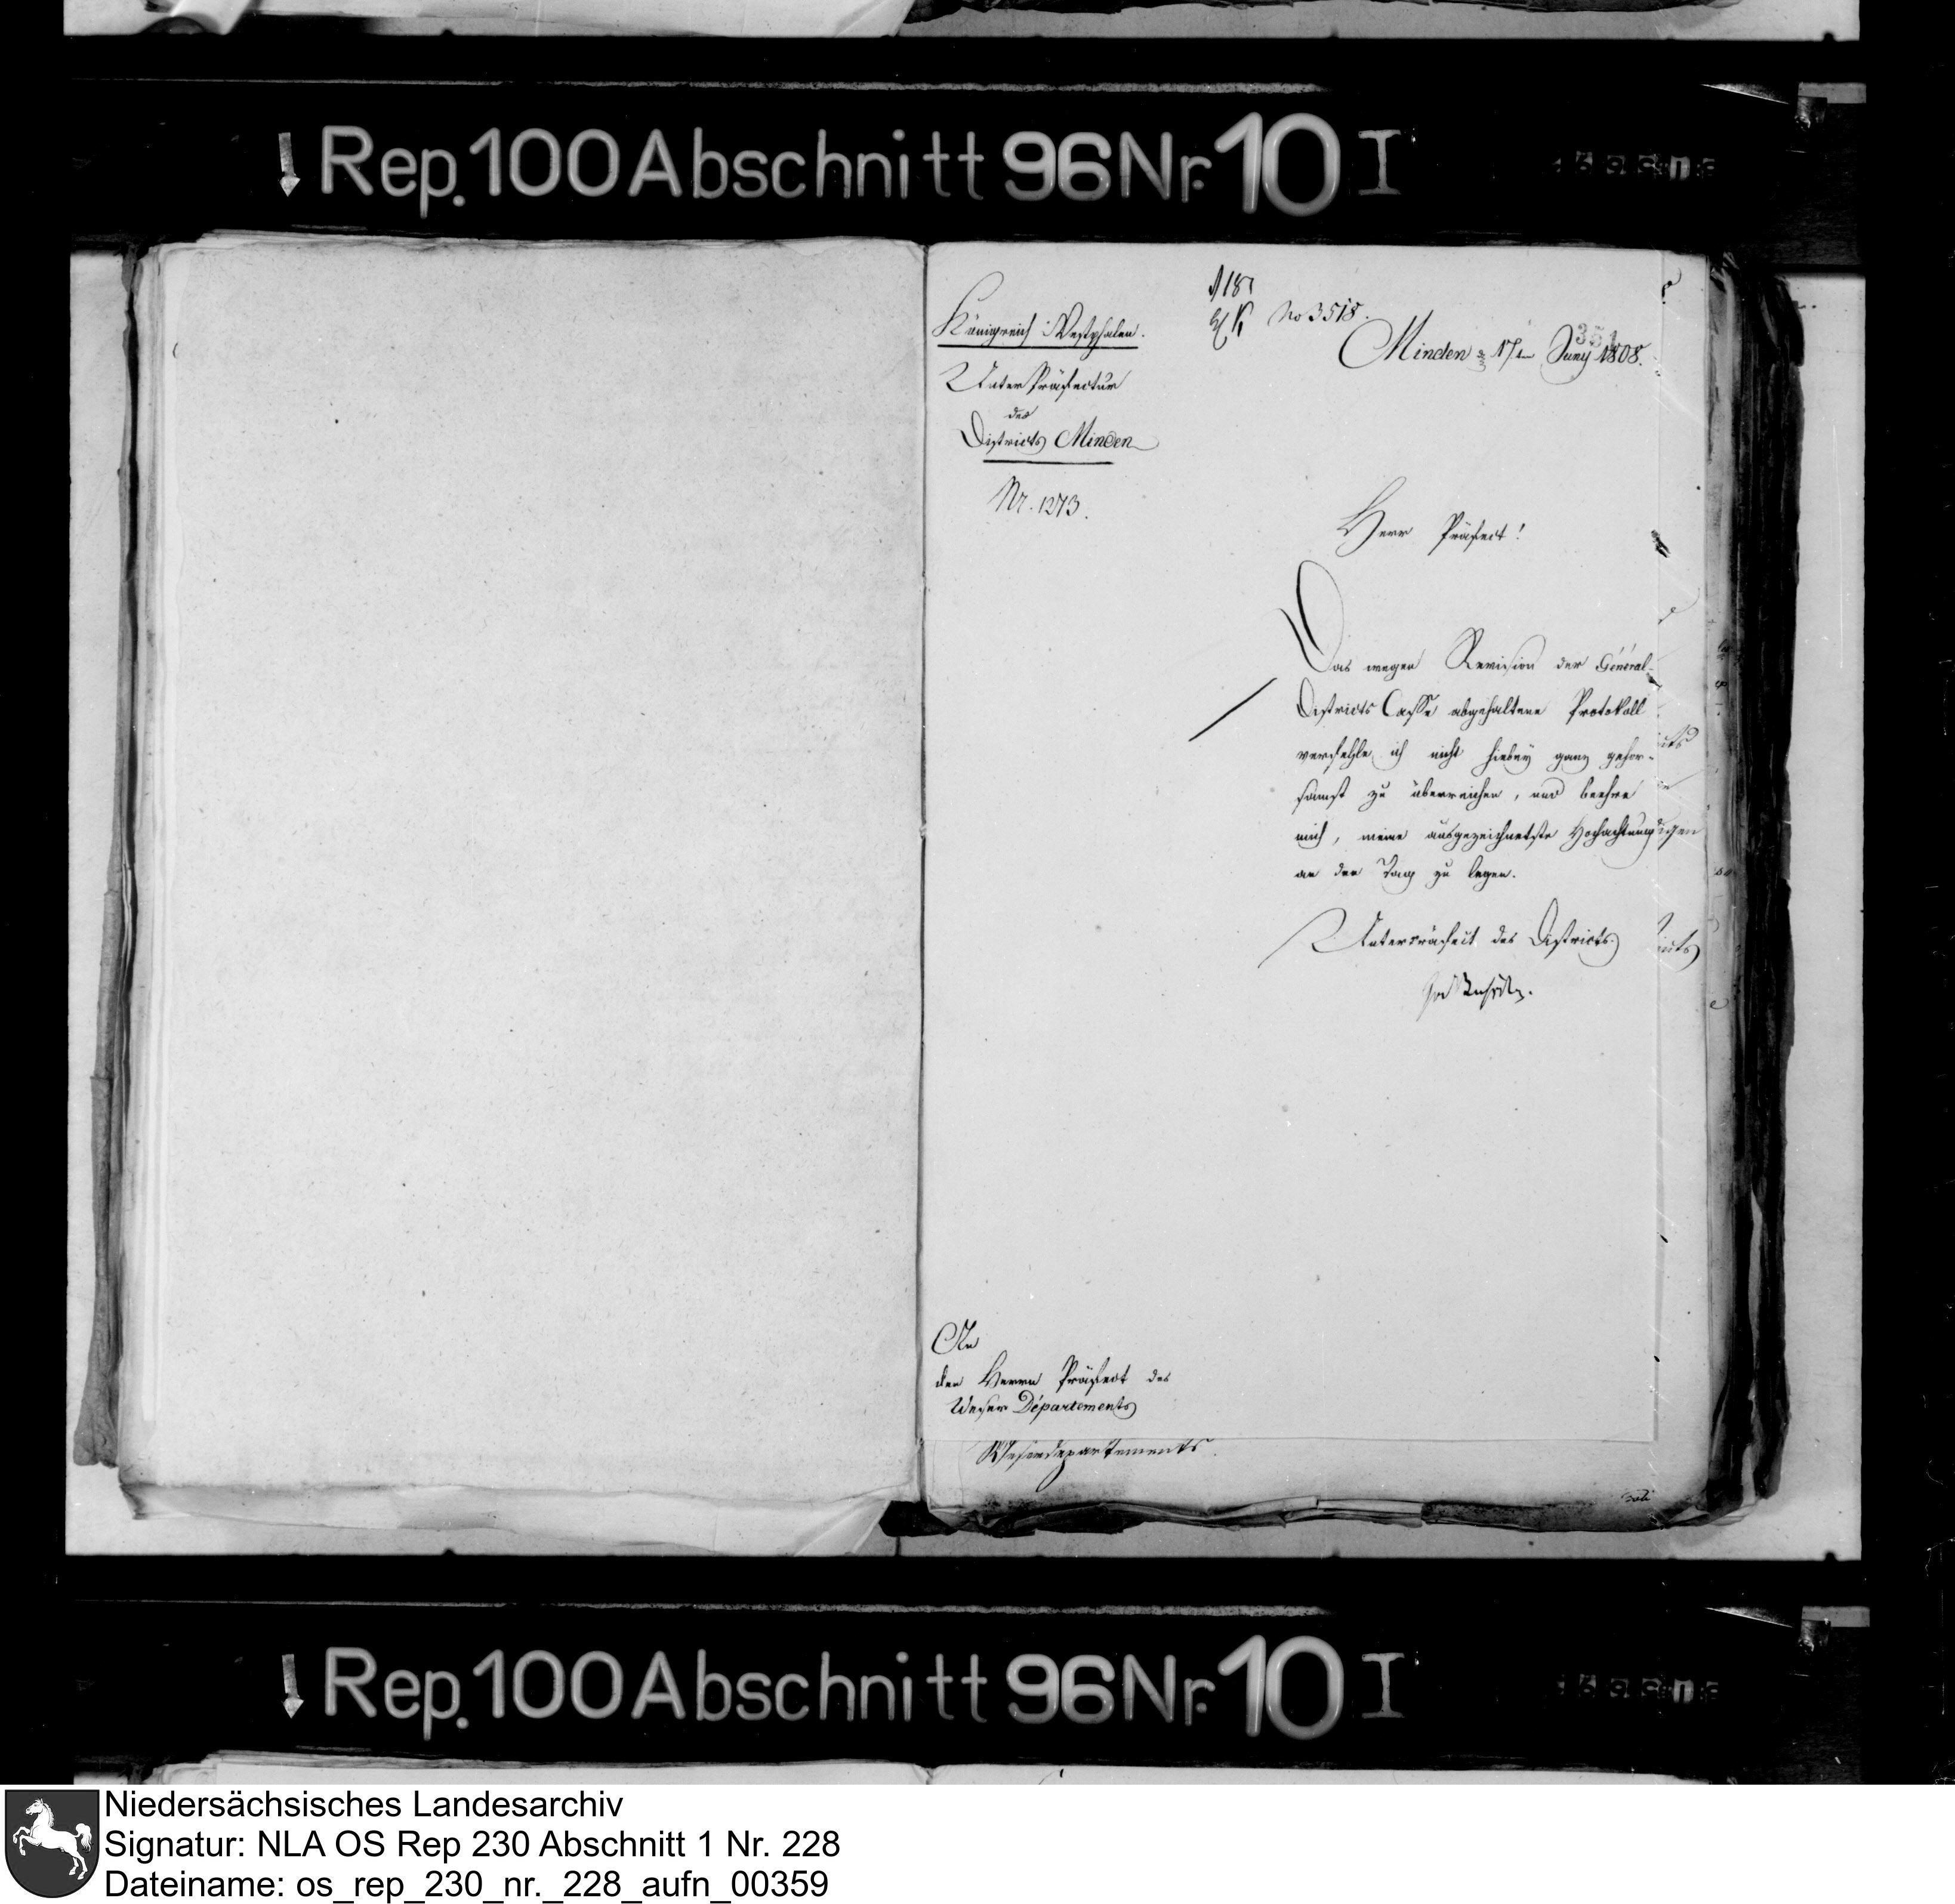 Rep. 100 Abschnitt 96 Nr. 10 I
Königreich Westphalen.
UnterPräfectur
des
Districts Minden
Nr. 1273.
No 3518.
Minden 17ten Juny 1808.
Herr Präfect!
Das wegen Revision der Général-
Districts Casse abgehaltene Protokoll
verfehle ich nicht hiebey ganz gehor-
samst zu überreichen, und beehre
mich, meine ausgezeichnetste Hochachtung
an den Tag zu legen.
Unterpräfect des Districts
An
den Herrn Präfect des
Weser Départements
Weserdepartements.
Rep. 100 Abschnitt 96 Nr. 10 I
Niedersächsisches Landesarchiv
Signatur: NLA OS Rep 230 Abschnitt 1 Nr. 228
Dateiname: os_rep_230_nr._228_aufn_00359